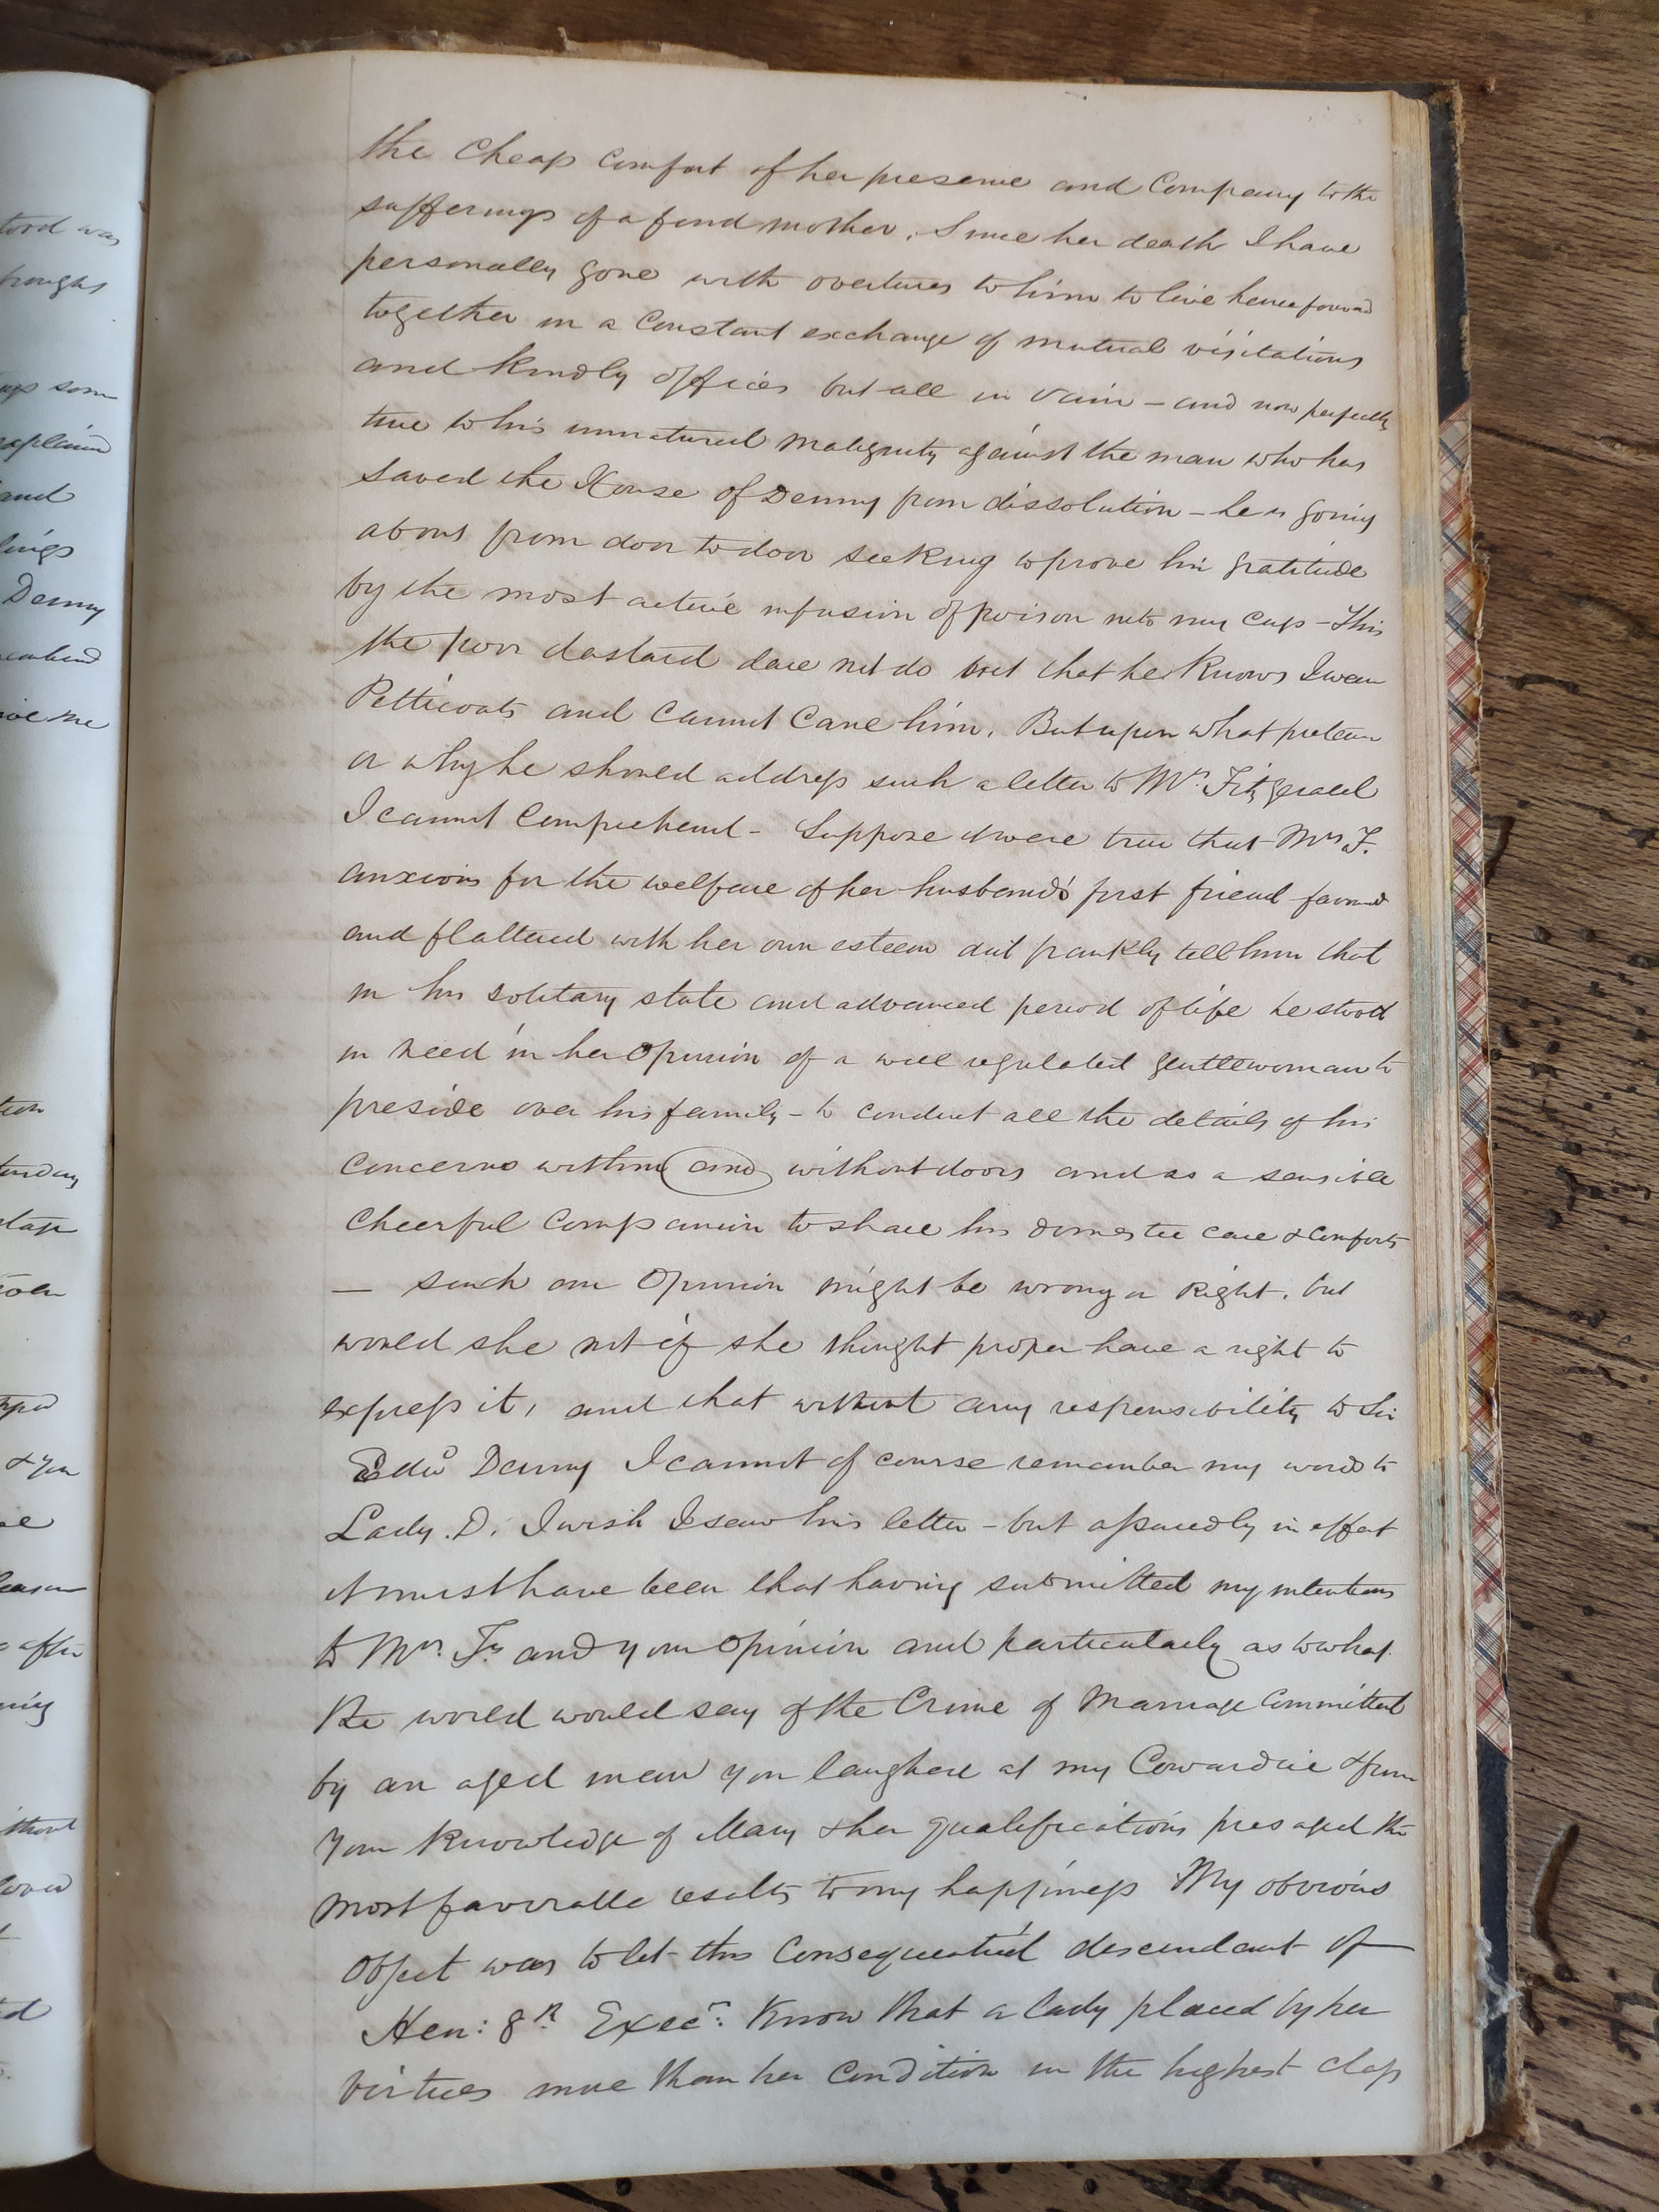 the Cheap Comfort of her presence and Company to the
sufferings of a fond mother. Since her death I have
personally gone with overtures to him to live henceforward
together in a Constant exchange of mutual visitations
and kindly offices but all in vain – and now perfectly
true to his unnatural malignity against the man who has
saved the House of Denny from dissolution – he is going
about from door to door seeking to prove his gratitude
by the most active infusion of poison into my Cup – This
the poor dastard dare not do but that he Knows I wear
Petticoats and Cannot Cane him. But upon what pretence
or why he should address such a letter to Mrs. Fitzgerald
I cannot Comprehend – Suppose it were true that Mrs F.
anxious for the welfare of her husband's first friend favored
and flattered with her own esteem did frankly tell him that
in his solitary state and advanced period of life he stood
in need in her Opinion of a well regulated gentlewoman to
preside over his family – to conduct all the details of his
Concerns within and without doors and as a sensible
Cheerful Companion to share his domestic care & Comforts
— such an Opinion might be wrong or Right. but
would she not if she thought proper have a right to
express it, and that without any responsibility to Sir
Edwd Denny I cannot of course remember my words to
Lady. D. I wish I saw his letter – but assuredly in effect
it must have been that having submitted my intentions
to Mrs. F. and your Opinion and particularly as to what
the world would say of the Crime of Marriage Committed
by an aged man you laughed at my Cowardice & from
your Knowledge of Mary & her qualifications presaged the
most favorable results to my happiness My obvious
Object was to let this Consequential descendant of
Hen: 8th Execr: Know that a lady placed by her
virtues more than her Condition in the highest class